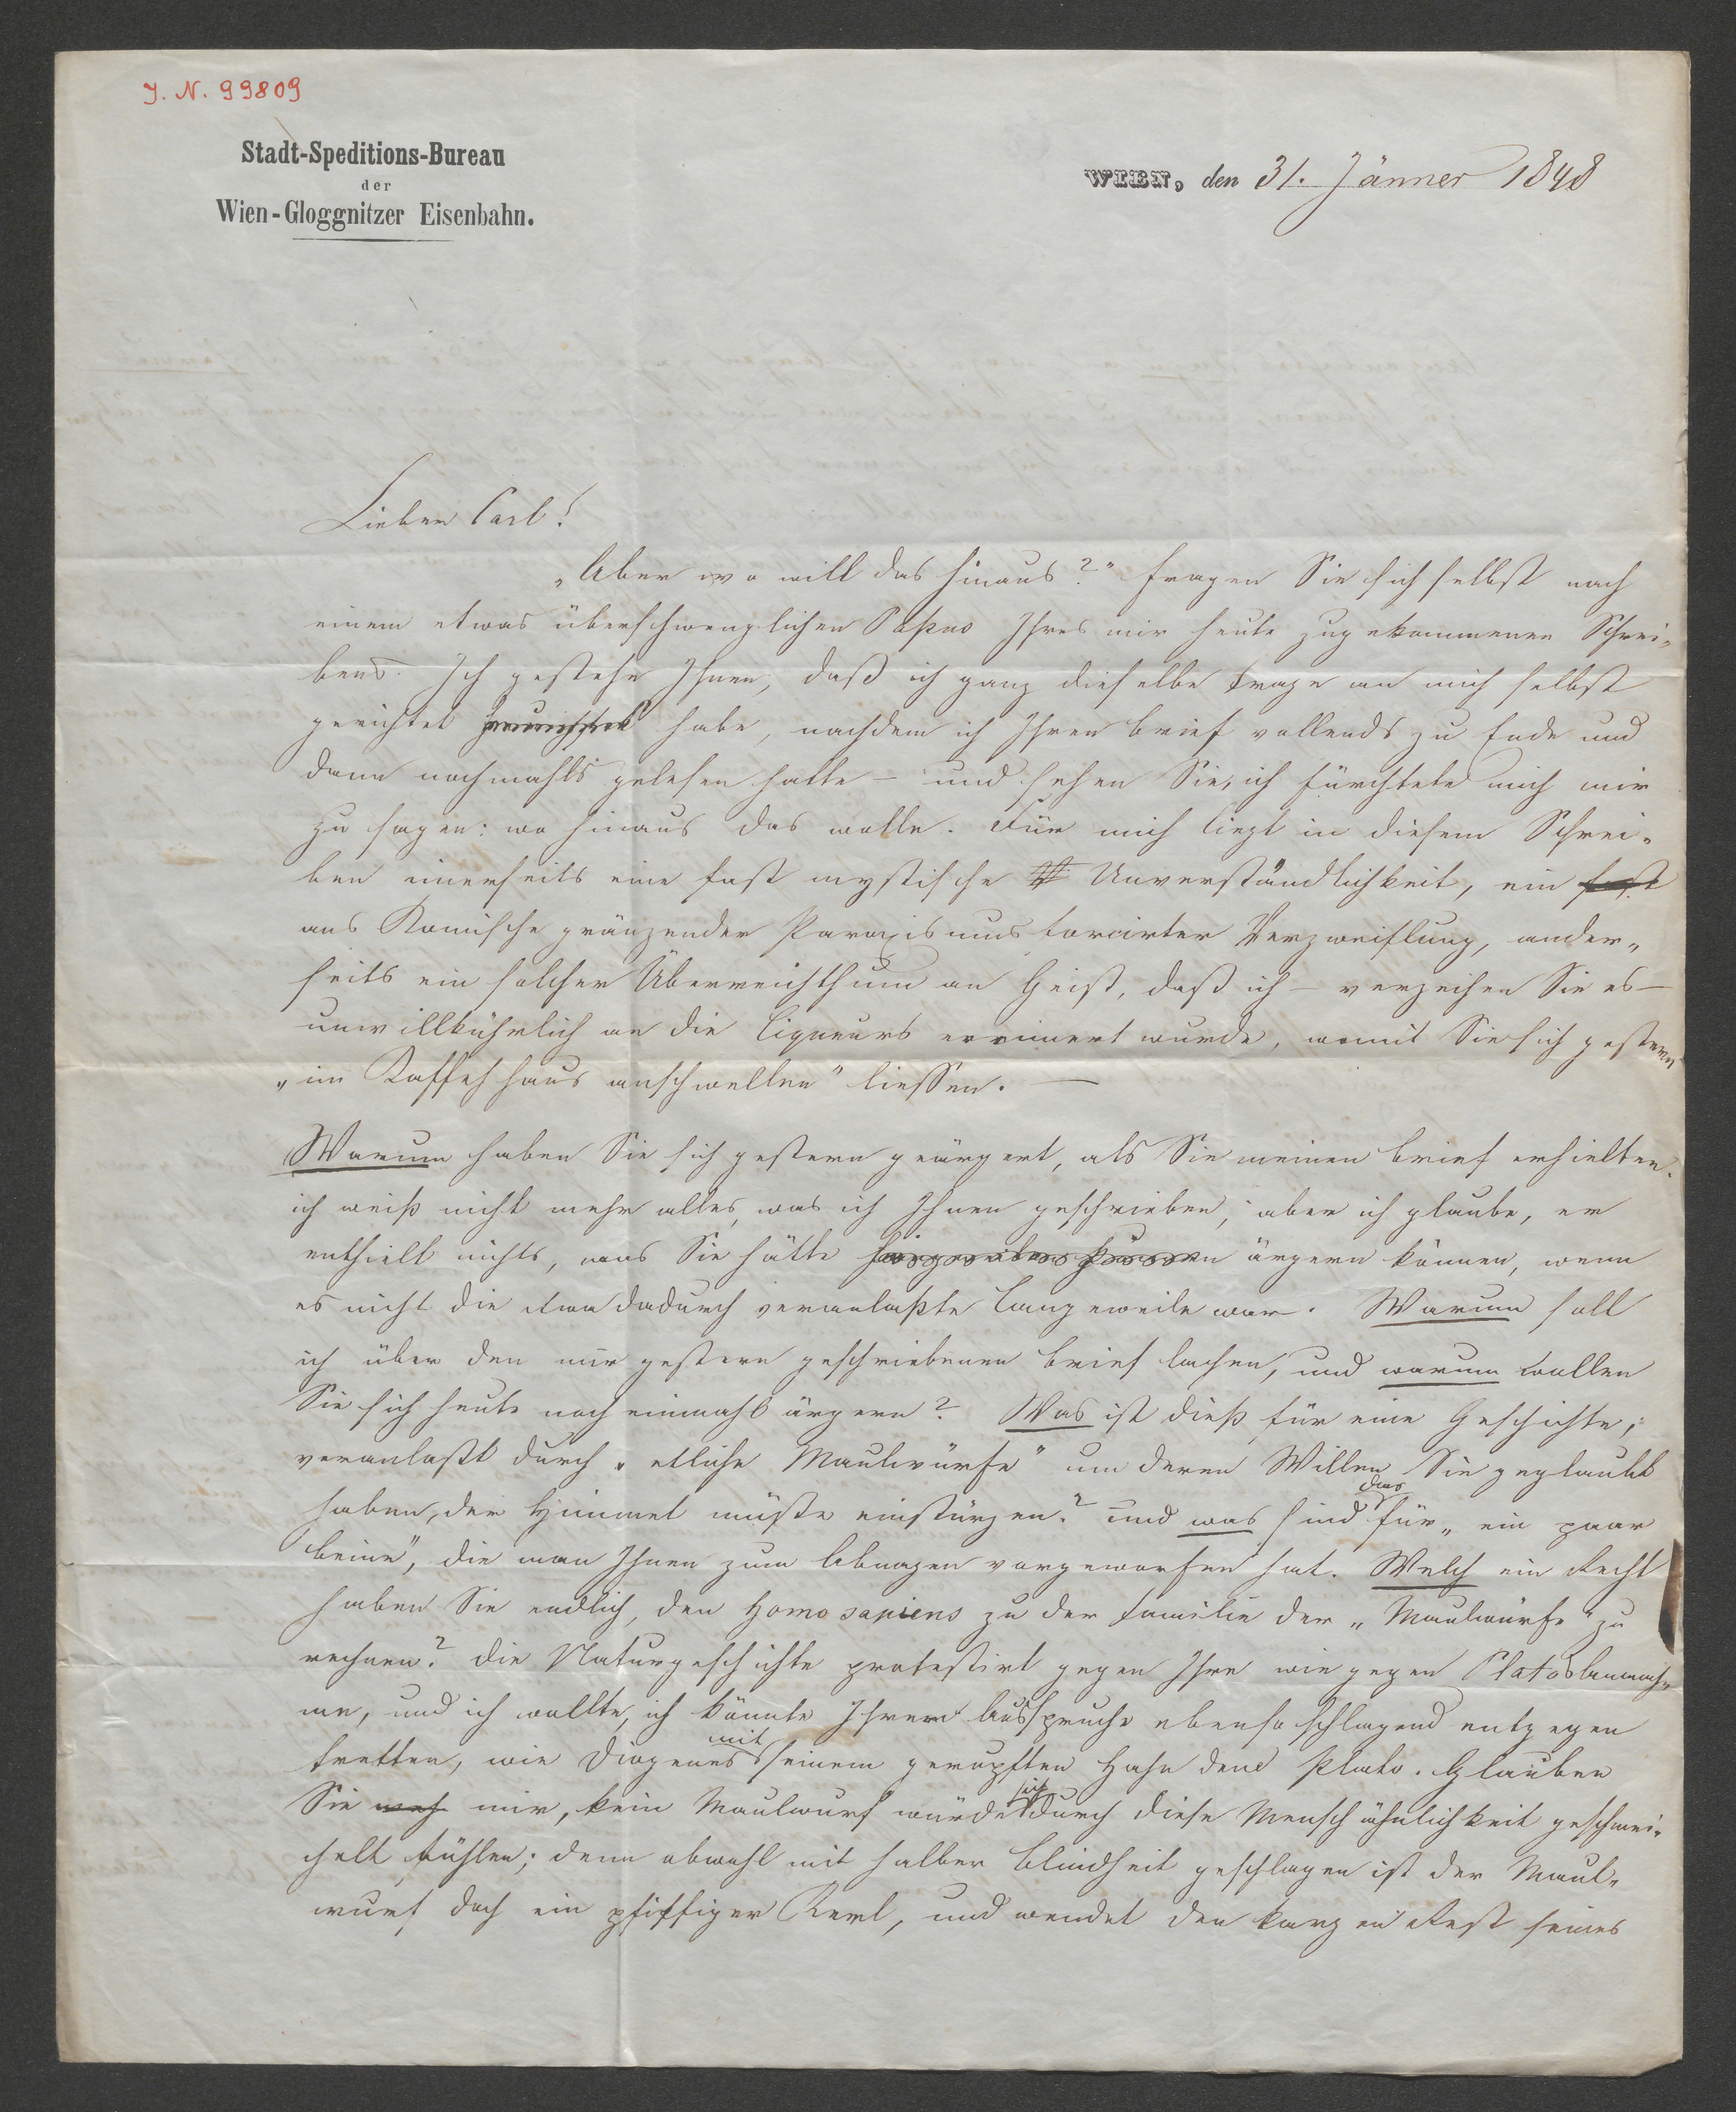 J. N. 99809
Stadt-Speditions-Bureau
der
Wien-Gloggnitzer Eisenbahn.
WIEN, den 31. Jänner 1848
Lieber Carl!
„Aber wo will das hinaus?" fragen Sie sich selbst nach
einem etwas überschwenglichen Passus Ihres mir heute zugekommenen Schrei-
bens. Ich gestehe Ihnen, daß ich ganz dieselbe Frage an mich selbst
gerichtet habe, nachdem ich Ihren Brief vollends zu Ende und
dann nochmahls gelesen hatte – und sehen Sie, ich fürchtete mich mir
zu sagen: wo hinaus das wolle. Für mich liegt in diesem Schrei-
ben einerseits eine fast mystische Unverständlichkeit, ein fast
ans Komische gränzender Paroxismus forcirter Verzweiflung, ander-
seits ein solcher Überreichthum an Geist, daß ich – verzeihen Sie es –
unwillkührlich an die Liqueurs erinnert wurde, womit Sie sich gestern
„im Kaffehhaus anschwellen" liessen. —
Warum haben Sie sich gestern geärgert, als Sie meinen Brief erhielten.
ich weiß nicht mehr alles, was ich Ihnen geschrieben, aber ich glaube, er
enthielt nichts, was Sie hätte ärgern können, wenn
es nicht die etwa dadurch veranlaßte Langeweile war. Warum soll
ich über den mir gestern geschriebenen Brief lachen, und warum wollen
Sie sich heute noch einmahl ärgern? Was ist dieß für eine Geschichte,
veranlaßt durch „etliche Maulwürfe" um deren Willen Sie geglaubt
haben, der Himmel müßte einstürzen? und was sind das für „ein paar
Beine", die man Ihnen zum Abnagen vorgeworfen hat. Welch ein Recht
haben Sie endlich, den Homo sapiens zu der Familie der „Maulwürfe" zu
rechnen? Die Naturgeschichte protestirt gegen Ihre wie gegen Platos Annah-
me, und ich wollte, ich könnte Ihrem Ausspruche ebenso schlagend entgegen
tretten, wie Diogenes mit seinem gerupften Hahn dem Plato. Glauben
Sie mir, kein Maulwurf würde sich durch diese Menschähnlichkeit geschmei-
chelt fühlen; denn obwohl mit halber Blindheit geschlagen ist der Maul-
wurf doch ein pfiffiger Kerl, und wendet den kargen Rest seines